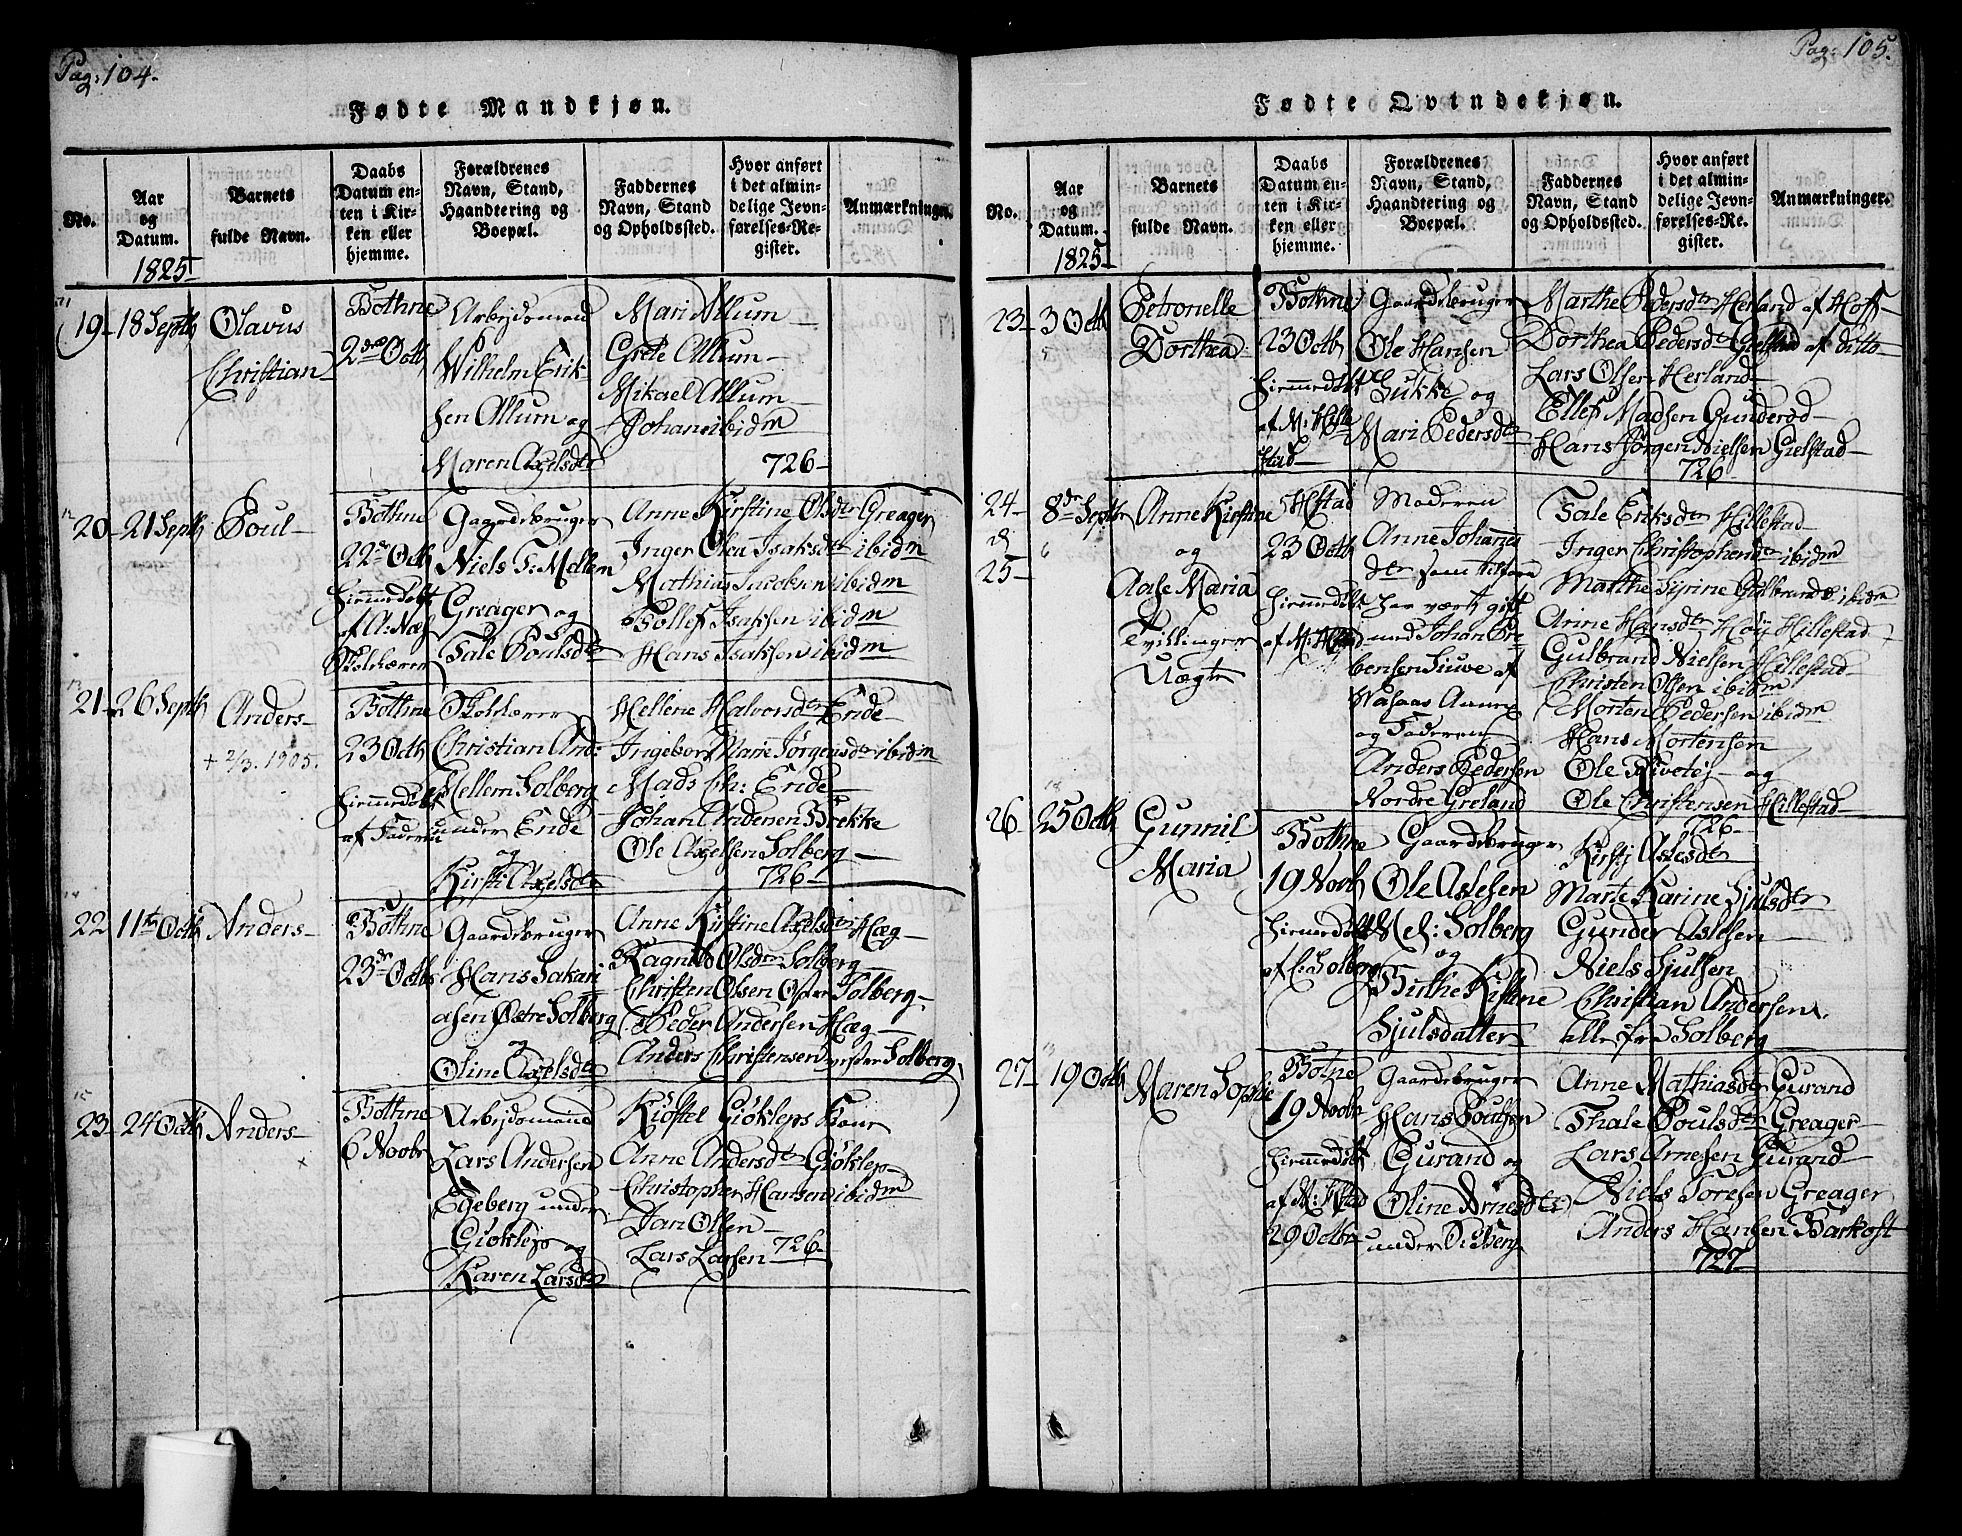 Pag: 104.
Fødte Mandkjøn.
No.
Aar
og
Datum.
1825
Barnets
fulde Navn.
Daabs
Datum en-
ten i Kir-
ken eller
hjemme.
Forældrenes
Navn, Stand,
Haandtering og
Boepæl.
Faddernes
Navn, Stand
og Opholdssted.
Hvor anført
i det almin-
delige Jevn-
førelses-Re-
gister.
Anmærkninger.
19 18 Septb
Olavus
Christian
Bothne
2den Octb
Arbejdsmand
Wilhelm Erik-
sen Allum og
Maren Axelsdtr
Mari Allum
Grete Allum
Mikael Allum
Johans ibidm
726
12
20 21 Septb
Poul
Bothne
22de Octb
Hiemmedøbt
af A: Næs
Skolelærer
Gaardebruger
Niels T: Mellem
Greager og
Tale Poulsdtr
Anne Kirstine Olsdtr Greager
Inger Olea Isaksdtr ibidm
Mathias Jacobsen ibidm
Tollef Isaksen ibidm
Hans Isaksen ibidm
13
21 26 Septb
Anders
+ 2/3. 1905.
Bothne
23 Octb
Hiemmedøbt
af Faderen
Skolelærer
Christian And:
Mellem Solberg
under Ende
og
Kirsti Axelsdtr
Hellene Halvorsdtr Ende
Ingebor Marie Jørgensdtr ibidm
Mads Ch: Ende
Johan Andersen Brekke
Ole Axelsen Solberg
726
14
22 11te Octb
Anders
Bothne
23de Octb
Gaardebruger
Hans Sakari-
asen Østre Solberg
og
Oline Axelsdtr
Anne Kirstine Axelsdtr Hæg
Ragnild Olsdtr Solberg
Christen Olsen Østre Solberg
Peder Andersen Hæg
Anders Christensen vestre Solberg
15
23 24 Octb
Anders
x
Bothne
6 Novbr
Arbejdsmand
Lars Andersen
Egeberg under
Giøklep og
Karen Larsdtr
Kiøstel Giøkleps Kone
Anne Andersdtr Giøklep
Christopher Hansen ibidm
Jan Olsen
Lars Larsen 726
Pag: 105.
Fødte Qvindekjøn.
No.
Aar
og
Datum.
1825
Barnets
fulde Navn.
Daabs
Datum en-
ten i Kir-
ken eller
hjemme.
Forældrenes
Navn, Stand,
Haandtering og
Boepæl.
Faddernes
Navn, Stand
og Opholdssted.
Hvor anført
i det almin-
delige Jevn-
førelses-Re-
gister.
Anmærkninger.
23 3 Octb
5
Petronelle
Dorthea
Bothne
23 Octb
Hiemmedøbt
af M: Hille
stad
Gaardebruger
Ole Hansen
og
Mari Pedersdtr
Marthe Pedersdtr Herland af Hoff
Dorthea Pedersdtr af ditto
Lars Olsen Herland
Ellef Madsen Gunderød
Hans Jørgen Nielsen Gielstad
726
24 8de Septbr
&
6
25
Anne Kirstine
og
Aase Maria
Tvillinger
Uægte
Hstad
23 Octb
Hiemmedøbt
Moderen
Anne Johannes
dtr som tilforn
har vært gift
med Johan
af
og Faderen
Anders Pedersen
Nordre Greland
Tale Eriksdtr Hillestad
Inger Christophersdtr ibidm
Marthe Syrine Gulbrands ibidm
Anne Hansdtr Høy Hillestad
Gulbrand Nielsen Hillestad
Christen Olsen ibidm
Morten Pedersen ibidm
Hans Mortensen
Ole og
Ole Christensen Hillestad
726
18
26 25 Octb
Gunnil
Maria
Bothne
19 Novb
Hiemmedøbt
af C: Solberg
Gaardebruger
Ole Aslesen
Mel: Solberg
og
Birthe Kistine
Sjulsdatter
Kirsti Aslesdtr
Marte Karine Sjulsdtr
Gunder Aslesen
Niels Sjulsen
Christian Andersen
alle fra Solberg
27 19 Octb
Maren Sophie
Botne
19 Novbr
Hiemmedøbt
af N: Hstad
29 Octbr
Gaardebruger
Hans Poulsen
Gurand og
Oline Arnesdtr
under
Anne Mathiasdtr Gurand
Thale Poulsdtr Greager
Lars Arnesen Gurand
Niels Toresen Greager
Anders Hansen Barkost
727